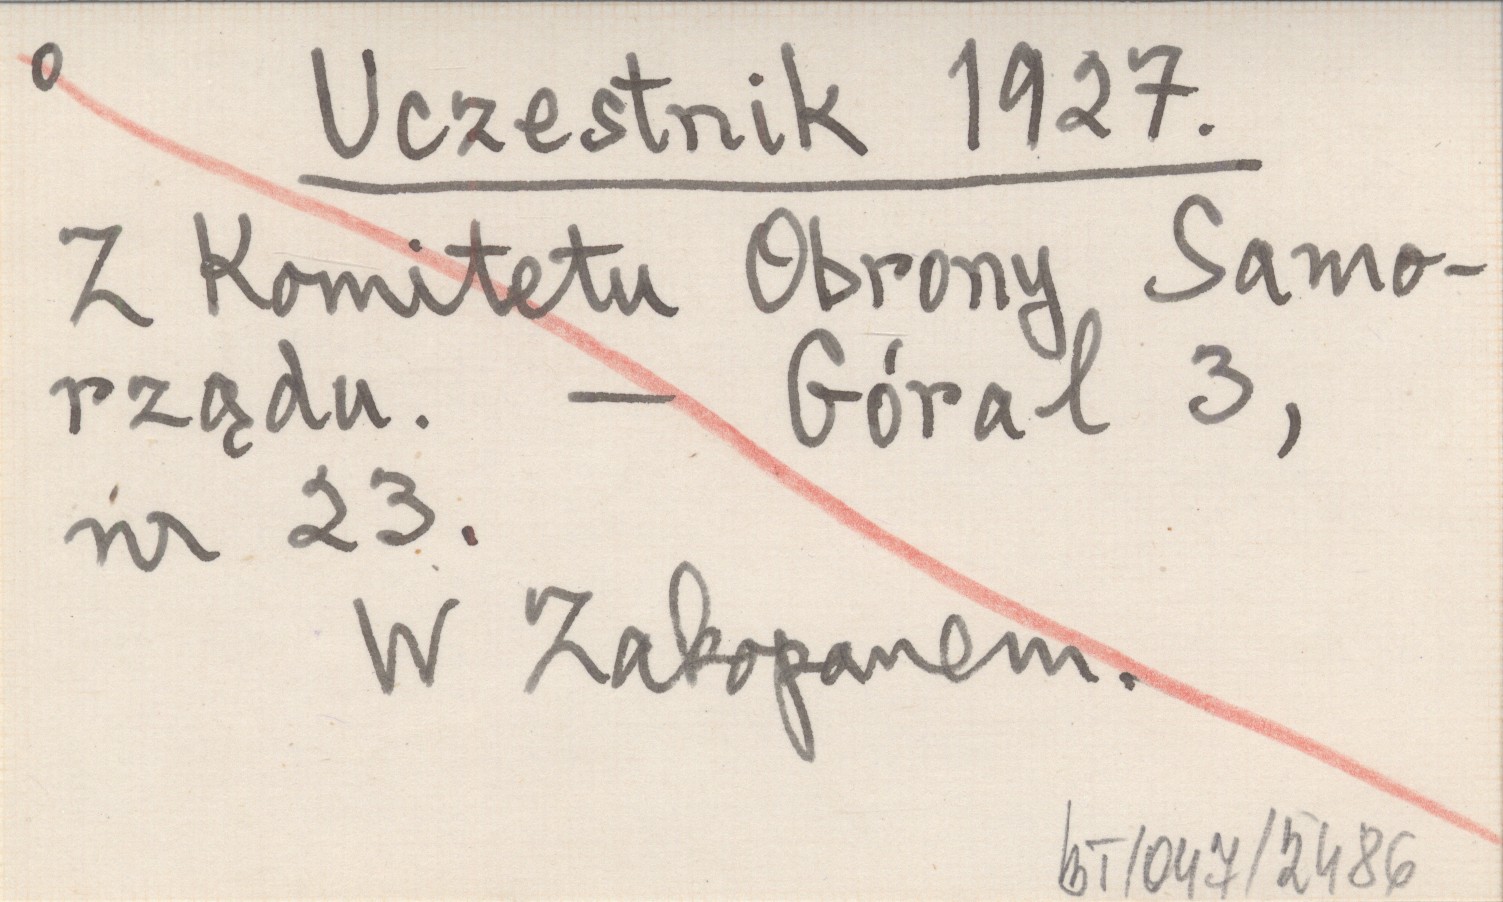 o
Uczestnik 1927.
Z Komitetu Obrony Samo-
rządu. — Góral 3,
nr 23.
W Zakopanem.
BT/047/2486